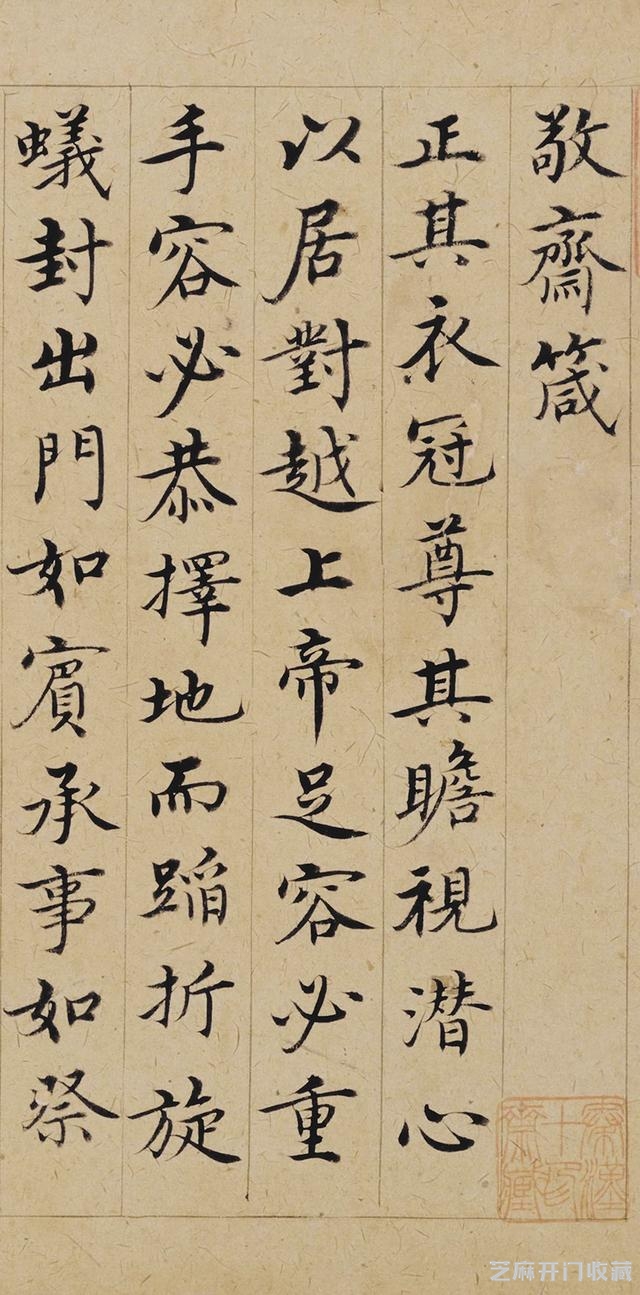 敬齋箴
正其衣冠尊其瞻視潜心
以居對越上帝足容必重
手容必恭擇地而蹈折旋
蟻封出門如賓承事如祭
芝麻开门收藏